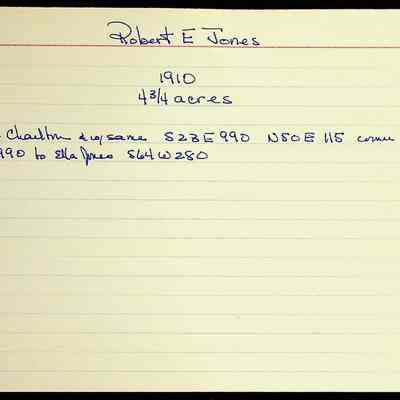 Robert E Jones
1910
4 3/4 acres
Charlton & w/ same S23E 990 N50E 115 corner
990 to Ella Jones S64W280